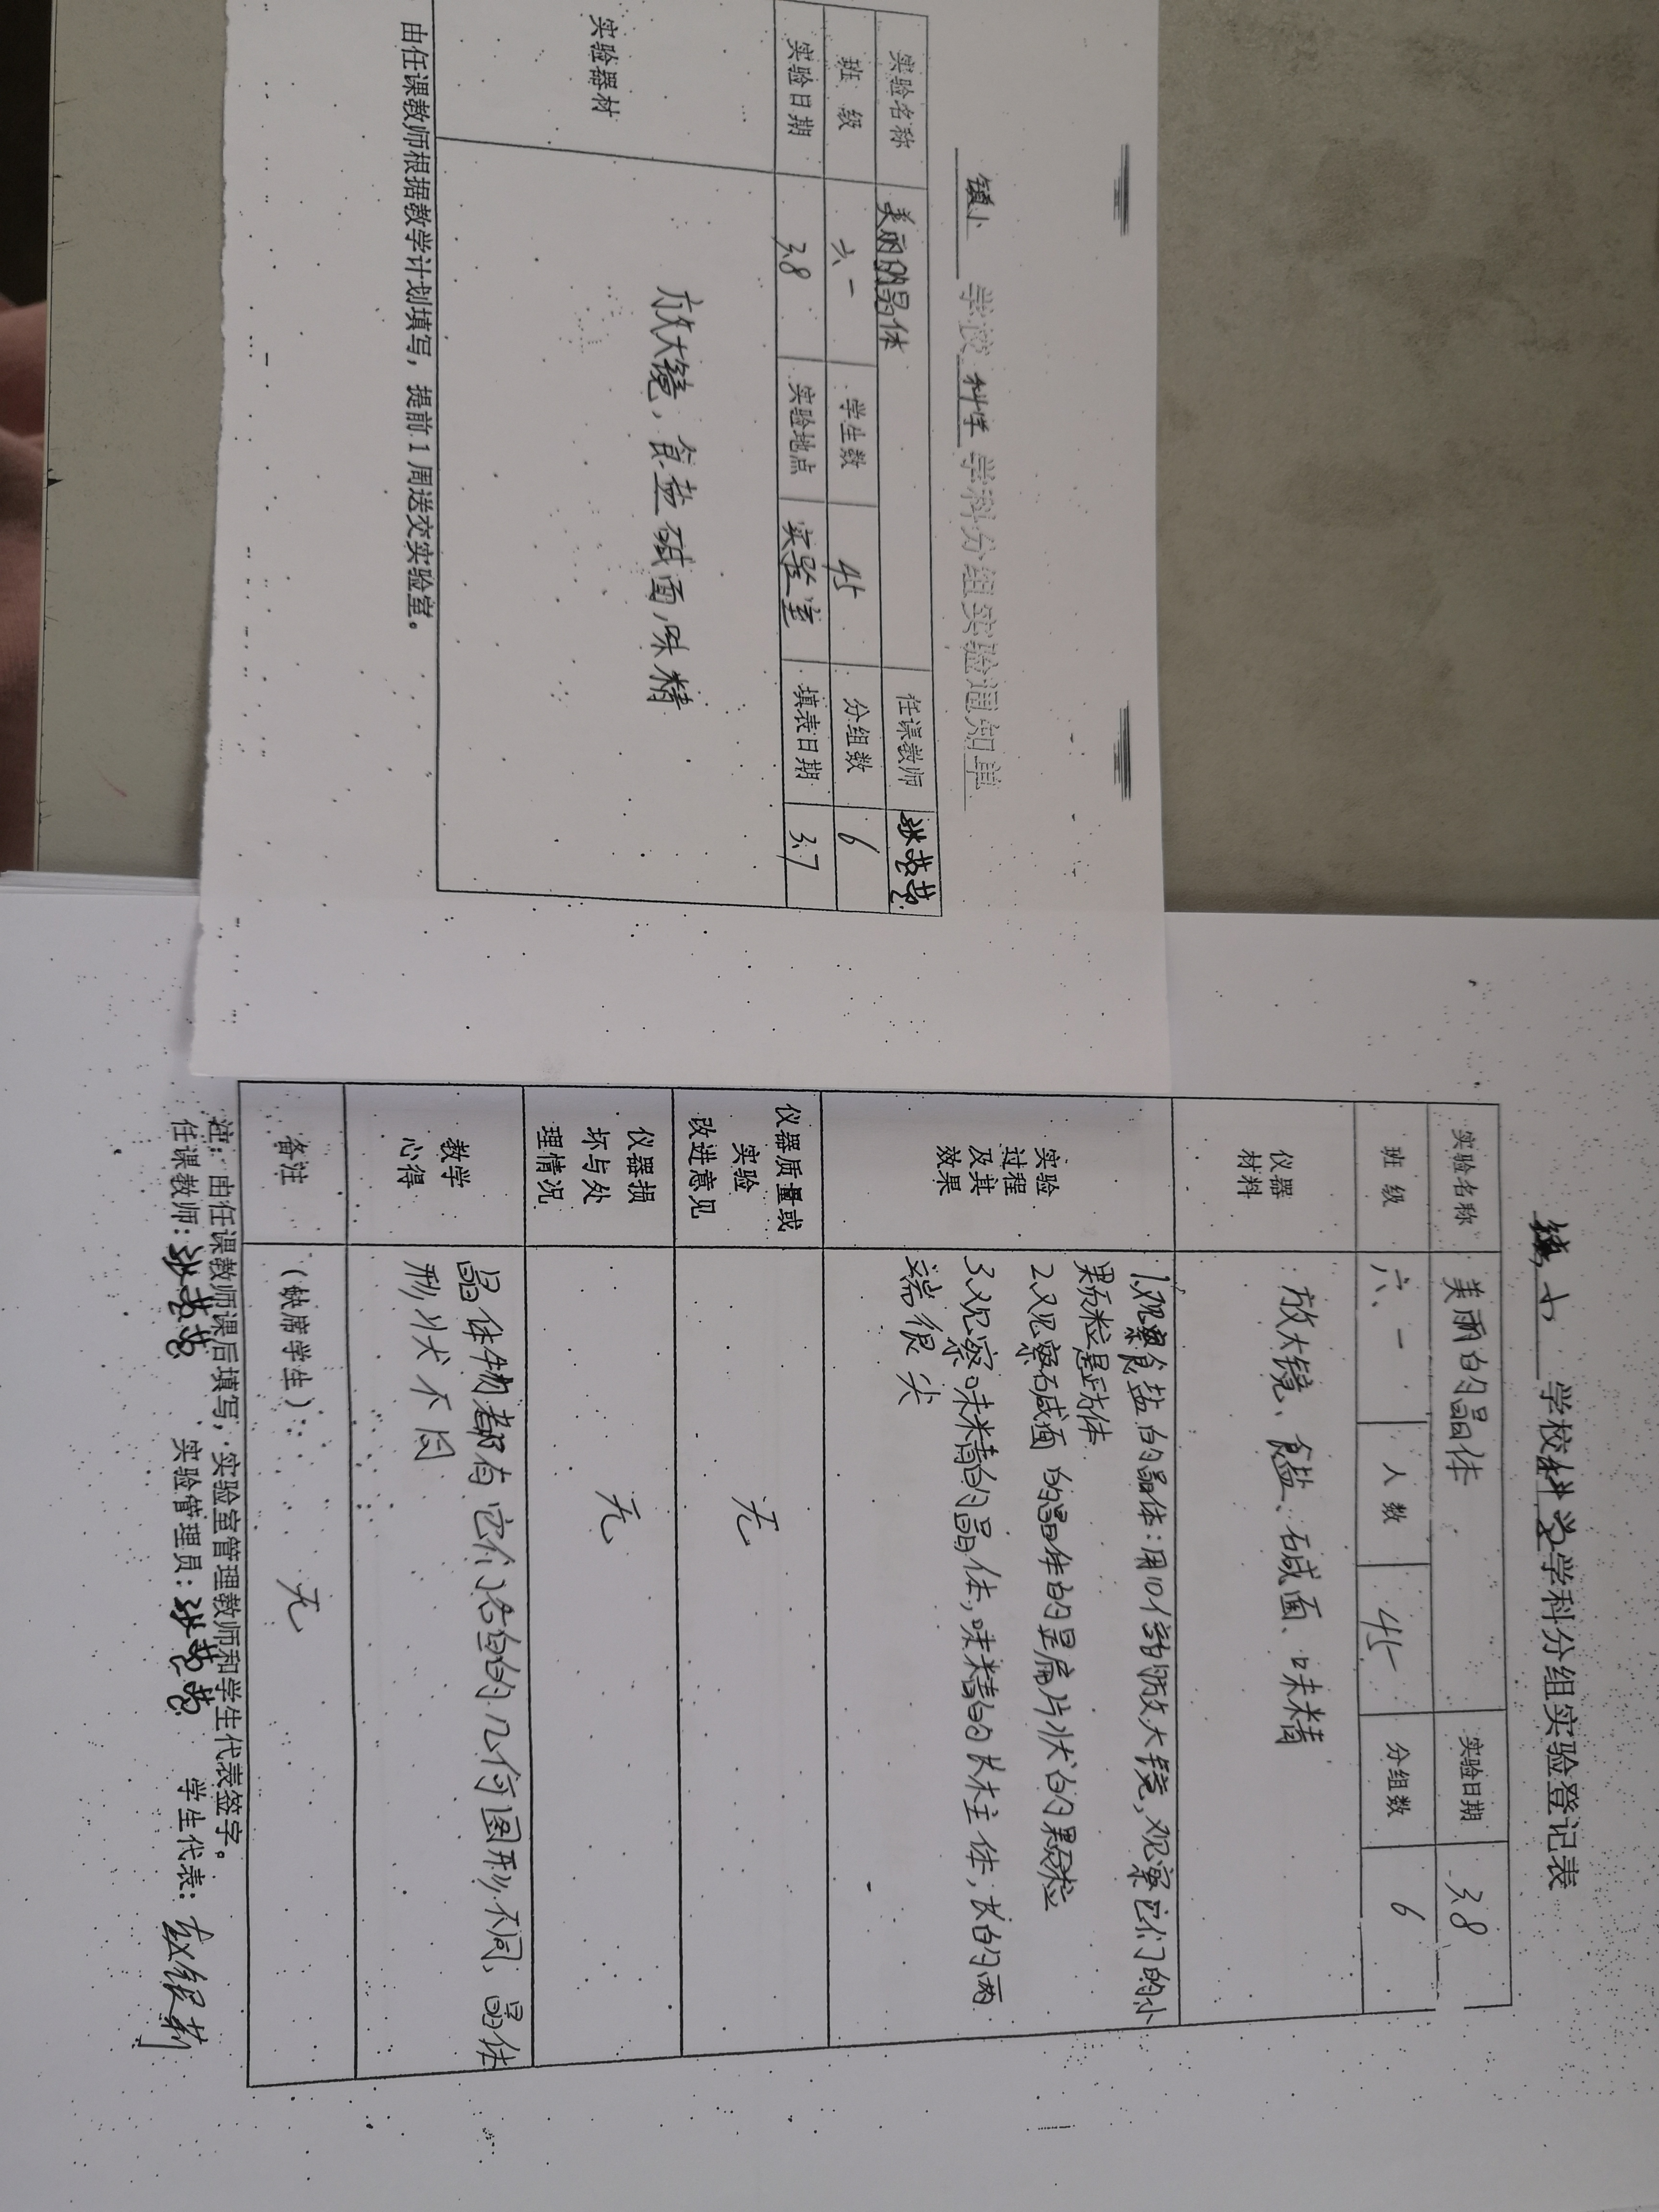 镇小 学校 科学 学科分组实验通知单
实验名称 美丽的晶体 任课教师
班 级 六一 学生数 45 分组数 6
实验日期 3.8 实验地点 实验室 填表日期 3.7
实验器材 放大镜,食盐 碱面,味精
由任课教师根据教学计划填写,提前1周送交实验室。
镇小 学校科学学科分组实验登记表
实验名称 美丽的晶体 实验日期 3.8
班 级 六、一 人 数 45 分组数 6
仪器
材料
放大镜、食盐、碱面、味精
实验
过程
及其
效果
1.观察食盐的晶体:用10倍的放大镜,观察它们的小
颗粒是立体
2.观察碱面的晶体的是扁片状的颗粒
3.观察味精的晶体,味精的长柱体,长的两
端很尖
仪器质量或
实验
改进意见
无
仪器损
坏与处
理情况
无
教学
心得
晶体物都有它们各自的几何图形不同,晶体
形状不同
备注 (缺席学生): 无
注:由任课教师课后填写,实验室管理教师和学生代表签字。
任课教师: 实验管理员: 学生代表: